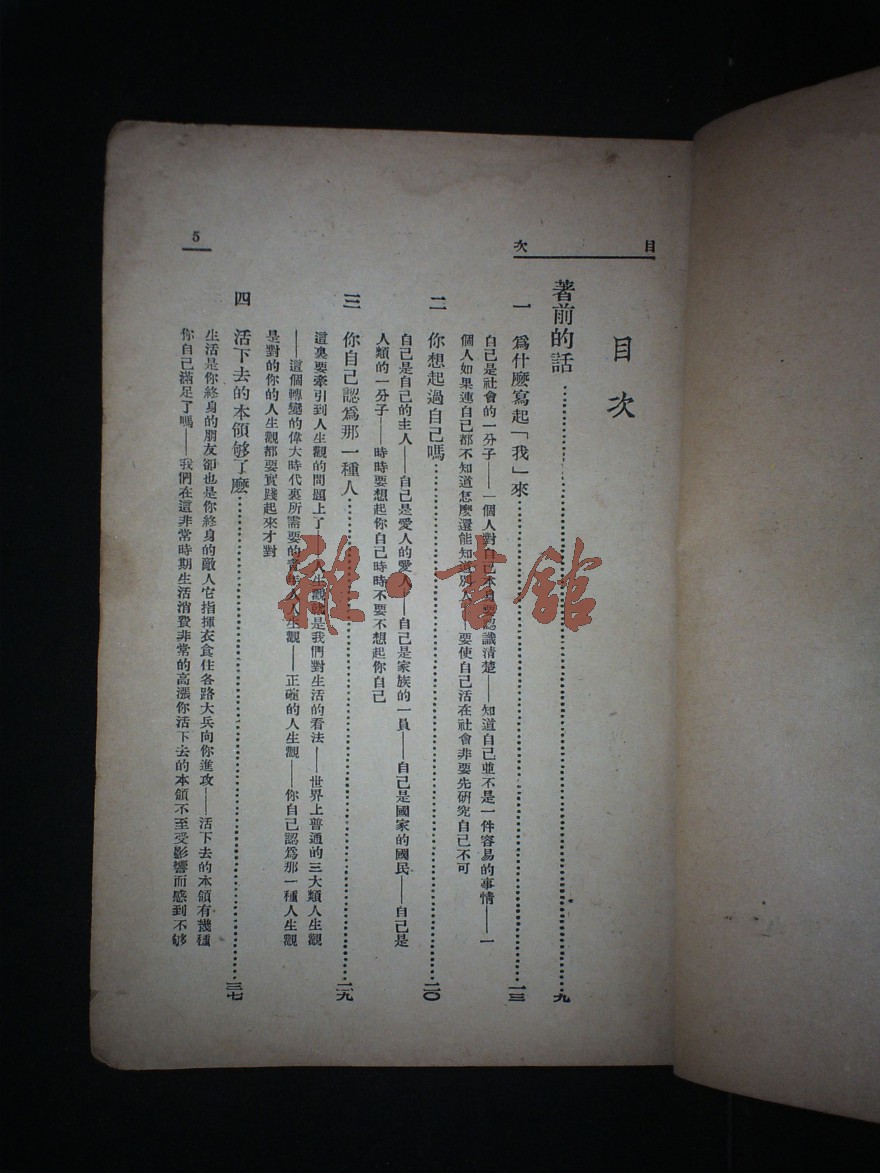 目次
目次
著前的話……九
一 爲什麼寫起「我」來……一三
自己是社會的一分子——一個人對自己本身要認識清楚——知道自己並不是一件容易的事情——一
個人如果連自己都不知道怎麼還能知道別人——要使自己活在社會非要先研究自己不可
二 你想起過自己嗎……二〇
自己是自己的主人——自己是愛人的愛人——自己是家族的一員——自己是國家的國民——自己是
人類的一分子——時時要想起你自己時時不要不想起你自己
三 你自己認爲那一種人……二九
這裏要牽引到人生觀的問題上了——人生觀就是我們對生活的看法——世界上普通的三大類人生觀
——這個轉變的偉大時代裏所需要的人人生觀——正確的人生觀——你自己認爲那一種人生觀
是對的你的人生觀都要實踐起來才對
四 活下去的本領够了麼……三七
生活是你終身的朋友卻也是你終身的敵人它指揮衣食住各路大兵向你進攻——活下去的本領有幾種
你自己滿足了嗎——我們在這非常時期生活消費非常的高漲你活下去的本領不至受影響而感到不够
5
雜·書館